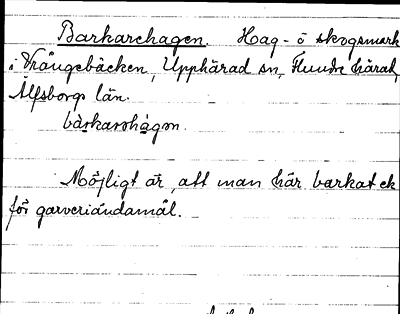 Barkarehagen. Hag- o skogsmark
i Trångebäcken, Upphärad sn, Flundre härad,
Älfsborgs län.
barkarehagen.
Möjligt är, att man här barkat ek
för garveriändamål.